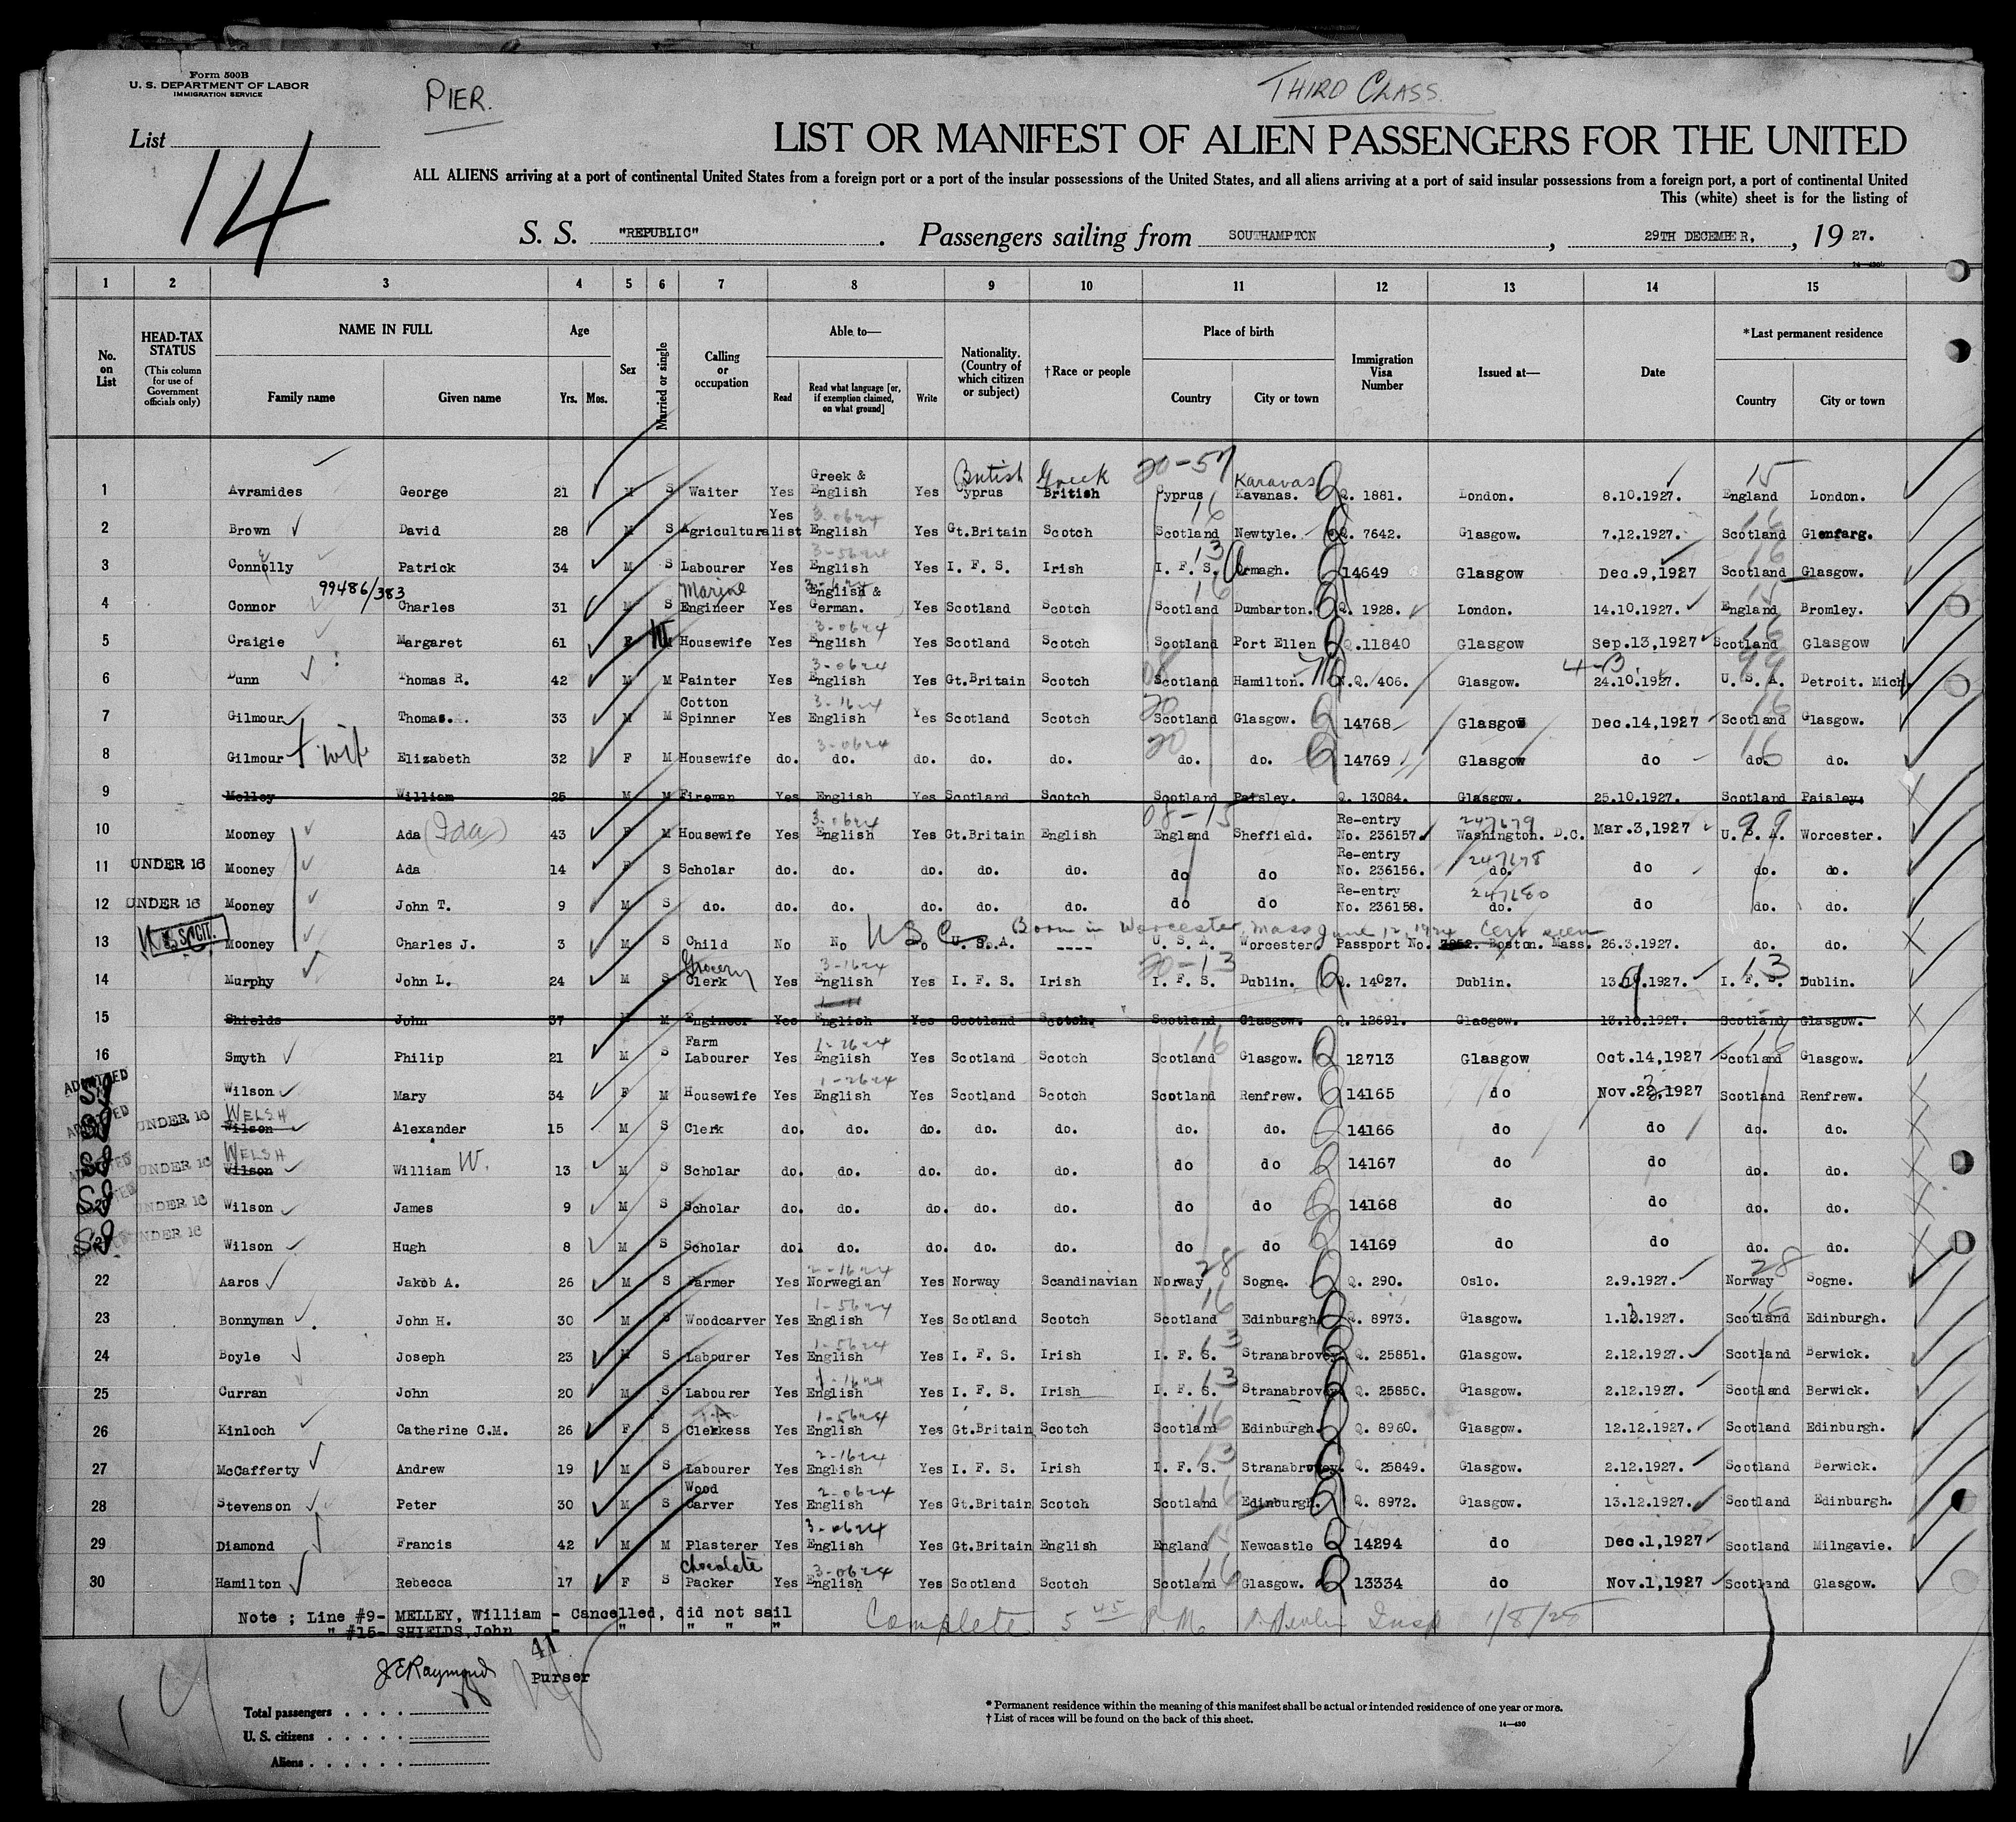 Form 500B
U. S. DEPARTMENT OF LABOR
IMMIGRATION SERVICE
PIER.
THIRD CLASS.
List 14
LIST OR MANIFEST OF ALIEN PASSENGERS FOR THE UNITED
ALL ALIENS arriving at a port of continental United States from a foreign port or a port of the insular possessions of the United States, and all aliens arriving at a port of said insular possessions from a foreign port, a port of continental United
This (white) sheet is for the listing of
S. S. "REPUBLIC" . Passengers sailing from SOUTHAMPTON , 29TH DECEMBER, , 19 27.
1 2 3 4 5 6 7 8 9 10 11 12 13 14 15
No. on List
HEAD-TAX STATUS (This column for use of Government officials only)
NAME IN FULL Family name Given name
Age Yrs. Mos.
Sex
Married or single
Calling or occupation
Able to— Read Read what language [or, if exemption claimed, on what ground] Write
Nationality. (Country of which citizen or subject)
†Race or people
Place of birth Country City or town
Immigration Visa Number
Issued at—
Date
*Last permanent residence Country City or town
1 Avramides George 21 M S Waiter Yes Greek & English Yes British Cyprus Greek British 20-57 Cyprus Karavas Kavanas. Q. 1881. London. 8.10.1927. 15 England London.
2 Brown David 28 M S Agriculturalist Yes 3-0624 English Yes Gt.Britain Scotch 16 Scotland Newtyle. Q. 7642. Glasgow. 7.12.1927. 16 Scotland Glenfarg.
3 Connolly Patrick 34 M S Labourer Yes 3-5624 English Yes I. F. S. Irish 13 I. F. S. Armagh. 14649 Glasgow Dec.9,1927 16 Scotland Glasgow.
4 Connor 99486/383 Charles 31 M S Marine Engineer Yes English & German. Yes Scotland Scotch 16 Scotland Dumbarton. Q. 1928. London. 14.10.1927. 15 England Bromley.
5 Craigie Margaret 61 F M Housewife Yes 3-0624 English Yes Scotland Scotch Scotland Port Ellen Q.11840 Glasgow Sep.13,1927 16 Scotland Glasgow
6 Dunn Thomas R. 42 M M Painter Yes 3-0624 English Yes Gt.Britain Scotch 08 Scotland Hamilton. N.Q. 406. Glasgow. 4-B 24.10.1927. 99 U. S. A. Detroit. Mich.
7 Gilmour Thomas. 33 M M Cotton Spinner Yes 3-1624 English Yes Scotland Scotch 20 Scotland Glasgow. Q 14768 Glasgow Dec.14,1927 16 Scotland Glasgow.
8 Gilmour + wife Elizabeth 32 F M Housewife do. 3-0624 do. do. do. do. 20 do. do. Q 14769 Glasgow do 16 do. do.
9 Melley William 25 M M Fireman Yes English Yes Scotland Scotch Scotland Paisley. Q. 13084. Glasgow. 25.10.1927. Scotland Paisley.
10 Mooney Ada (Ida) 43 F M Housewife Yes 3-0624 English Yes Gt.Britain English 08-15 England Sheffield. Re-entry No. 236157. 247679 Washington. D.C. Mar.3,1927 99 U. S. A. Worcester.
11 UNDER 16 Mooney Ada 14 F S Scholar do. do. do. do. do. do do Re-entry No. 236156. 247678 do. do do. do.
12 UNDER 16 Mooney John T. 9 M S do. do. do. do. do. do. do do Re-entry No. 236158. 247680 do. do do. do.
13 U. S. CIT. Mooney Charles J. 3 M S Child No No No USC U. S. A. Born in Worcester, Mass June 12, 1924 Cert seen ---- U. S. A. Worcester. Passport No. Boston. Mass. 26.3.1927. do. do.
14 Murphy John L. 24 M S Grocery Clerk Yes 3-1624 English Yes I. F. S. Irish 20-13 I. F. S. Dublin. Q. 14027. Dublin. 13.9.1927. 13 I. F. S. Dublin.
15 Shields John 37 M M Engineer Yes English Yes Scotland Scotch. Scotland Glasgow. Q. 12691. Glasgow. 13.10.1927. Scotland Glasgow.
16 Smyth Philip 21 M S Farm Labourer Yes 1-2624 English Yes Scotland Scotch 16 Scotland Glasgow. Q 12713 Glasgow Oct.14,1927 16 Scotland Glasgow.
ADMITTED SI Wilson Mary 34 F M Housewife Yes 1-2624 English Yes Scotland Scotch Scotland Renfrew. Q 14165 do Nov.22,1927 Scotland Renfrew.
ADMITTED SI UNDER 16 WELSH Wilson Alexander 15 M S Clerk do. do. do. do. do. do. do. Q 14166 do do do. do.
ADMITTED SI UNDER 16 WELSH Wilson William W. 13 M S Scholar do. do. do. do. do. do do Q 14167 do do do. do.
ADMITTED SI UNDER 16 Wilson James 9 M S Scholar do. do. do. do. do. do do Q 14168 do do do. do.
SI UNDER 16 Wilson Hugh 8 M S Scholar do. do. do. do. do. do do Q 14169 do do do. do.
22 Aaros Jakob A. 26 M S Farmer Yes 2-1624 Norwegian Yes Norway Scandinavian 28 Norway Sogne. Q. 290. Oslo. 2.9.1927. 28 Norway Sogne.
23 Bonnyman John H. 30 M S Woodcarver Yes 1-5624 English Yes Scotland Scotch 16 Scotland Edinburgh Q. 8973. Glasgow. 1.12.1927. 16 Scotland Edinburgh.
24 Boyle Joseph 23 M S Labourer Yes 1-5624 English Yes I. F. S. Irish 13 I. F. S. Stranabrovey Q. 25851. Glasgow. 2.12.1927. Scotland Berwick.
25 Curran John 20 M S Labourer Yes 1-1624 English Yes I. F. S. Irish 13 I. F. S. Stranabrovey Q. 25850. Glasgow. 2.12.1927. Scotland Berwick.
26 Kinloch Catherine C.M. 26 F S Clerkess Yes 1-5624 English Yes Gt.Britain Scotch 16 Scotland Edinburgh. Q. 8960. Glasgow. 12.12.1927. Scotland Edinburgh.
27 McCafferty Andrew 19 M S Labourer Yes 2-1624 English Yes I. F. S. Irish 13 I. F. S. Stranabrovey. Q. 25849. Glasgow. 2.12.1927. Scotland Berwick.
28 Stevenson Peter 30 M S Wood Carver Yes 2-0624 English Yes Gt.Britain Scotch 16 Scotland Edinburgh. Q. 8972. Glasgow. 13.12.1927. Scotland Edinburgh.
29 Diamond Francis 42 M M Plasterer Yes 3-0624 English Yes Gt.Britain English 15 England Newcastle Q 14294 do Dec.1,1927 Scotland Milngavie.
30 Hamilton Rebecca 17 F S Chocolate Packer Yes 3-0624 English Yes Scotland Scotch 16 Scotland Glasgow. Q 13334 do Nov.1,1927 Scotland Glasgow.
Note ; Line #9- MELLEY, William - Cancelled, did not sail
" #15- SHIELDS, John - " " " "
Complete 5 45 P.M. Insp 1/8/28
41
J E Raymond
Purser
Total passengers
U. S. citizens
Aliens
* Permanent residence within the meaning of this manifest shall be actual or intended residence of one year or more.
† List of races will be found on the back of this sheet.
14—430